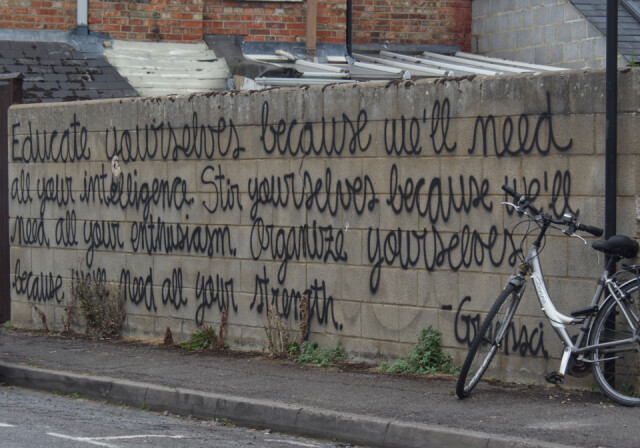 Educate yourselves because we'll need
all your intelligence. Stir yourselves because we'll
need all your enthusiasm. Organize yourselves
because we'll need all your strength.
-Gramsci.